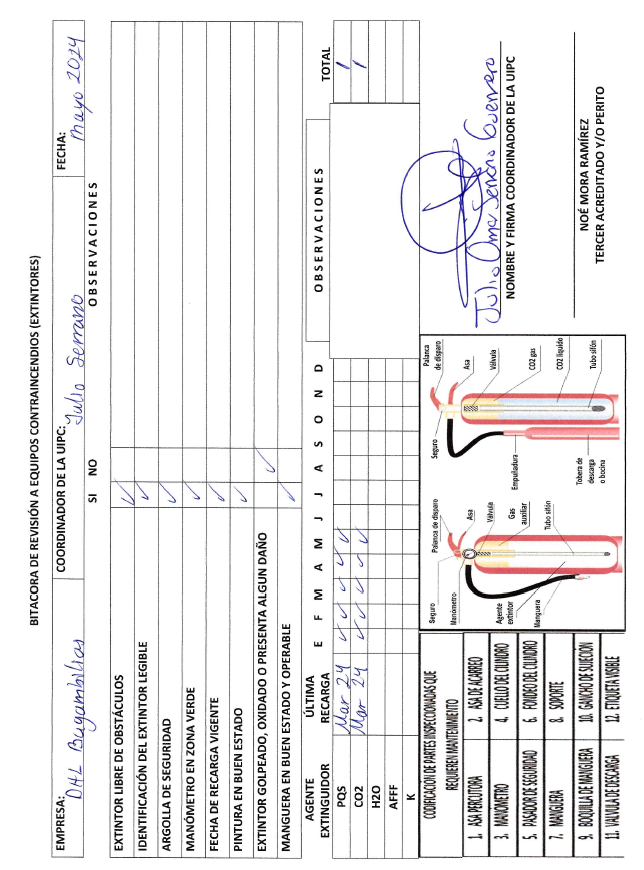 BITACORA DE REVISIÓN A EQUIPOS CONTRAINCENDIOS (EXTINTORES)
EMPRESA: DHL Bugambilias COORDINADOR DE LA UIPC: Julio Serrano FECHA: Mayo 2024
SI NO OBSERVACIONES
EXTINTOR LIBRE DE OBSTÁCULOS ✓
IDENTIFICACIÓN DEL EXTINTOR LEGIBLE ✓
ARGOLLA DE SEGURIDAD ✓
MANÓMETRO EN ZONA VERDE ✓
FECHA DE RECARGA VIGENTE ✓
PINTURA EN BUEN ESTADO ✓
EXTINTOR GOLPEADO, OXIDADO O PRESENTA ALGUN DAÑO ✓
MANGUERA EN BUEN ESTADO Y OPERABLE ✓
AGENTE EXTINGUIDOR ÚLTIMA RECARGA E F M A M J J A S O N D OBSERVACIONES TOTAL
PQS Mar 24 ✓ ✓ ✓ ✓ ✓ 1
CO2 Mar 24 ✓ ✓ ✓ ✓ ✓ 1
H2O
AFFF
K
CODIFICACION DE PARTES INSPECCIONADAS QUE
REQUIEREN MANTENIMIENTO
1. ASA PERCUTORA 2. ASA DE ACARREO
3. MANOMETRO 4. CUELLO DEL CILINDRO
5. PASADOR DE SEGURIDAD 6. FONDEO DEL CILINDRO
7. MANGUERA 8. SOPORTE
9. BOQUILLA DE MANGUERA 10. GANCHO DE SUJECION
11. VALVULA DE DESCARGA 12. ETIQUETA VISIBLE
Palanca de disparo
Seguro
Asa
Manómetro
Válvula
Gas auxiliar
Agente extintor
Tubo sifón
Manguera
Palanca de disparo
Seguro
Asa
Válvula
CO2 gas
Empuñadura
CO2 líquido
Tobera de descarga o bocina
Tubo sifón
Julio Omar Serrano Guerrero
NOMBRE Y FIRMA COORDINADOR DE LA UIPC
NOÉ MORA RAMÍREZ
TERCER ACREDITADO Y/O PERITO